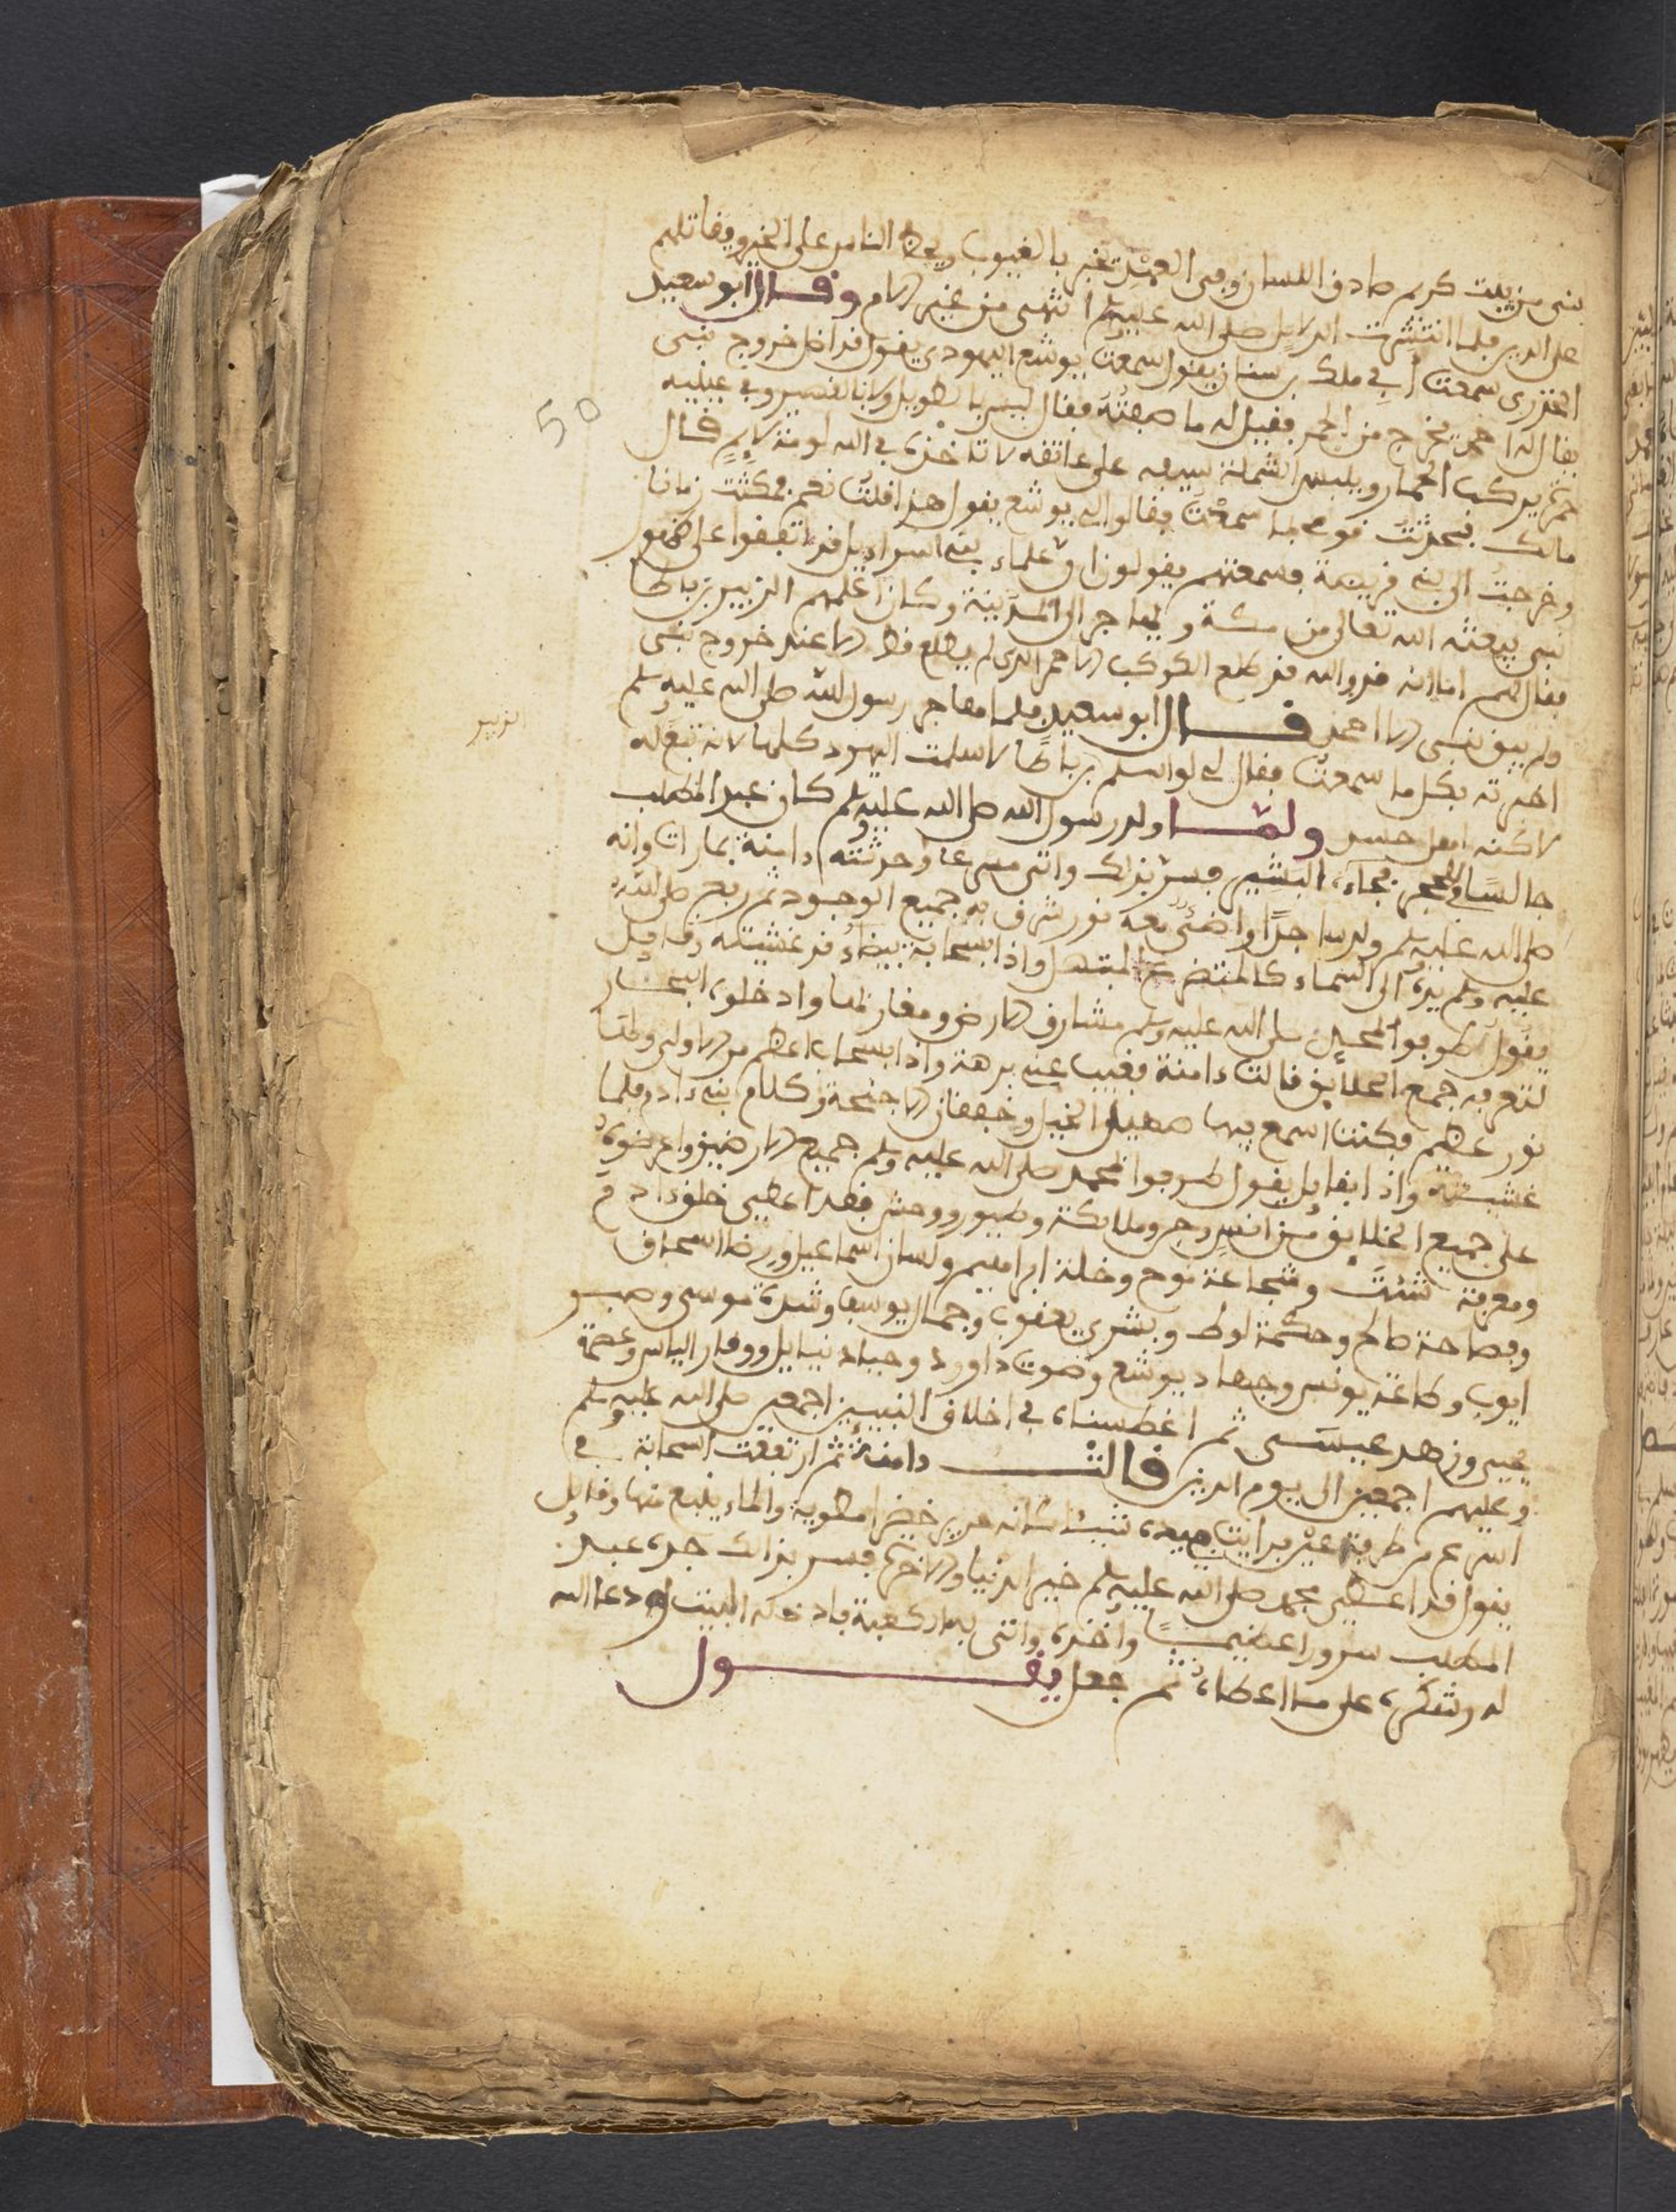 نبي من بيت كريم صادق اللسان وفي العهد تخبر بالغيوب ويحض الناس على الخير ويقاتلهم
على الدين فلما انتشرت الدلايل صلى الله عليه وسلم انتهى من غير الام وقال ابو سعيد
الخذري سمعت أبي ملك بن سنان يقول سمعت يوشع اليهودي يقول قد اظل خروج نبي
يقال له احمد يخرج من الحرم فقيل له ما صفته فقال ليس بالطويل ولا بالقصير وفي عينيه
حمرة يركب الحمار ويلبس الشملة سيفه على عاتقه لا تاخذه في الله لومة لايم قال
مالك فحدثت قومي بما سمعت فقالوا لي يوشع يقول هذا قلت نعم فمكثت زمانا
وخرجت الى بني قريضة فسمعتهم يقولون ان علماء بني اسراديل قد اتفقوا على ظهور
نبي يبعثه الله تعالى من مكة ويهاجر الى المدينة وكان اعلمهم الزبير بن باطا
فقال لهم اما انه قد والله قد طلع الكوكب الاحمر الذي لم يطلع قط الا عند خروج نبي
ولم يبق نبي الا احمد قال ابو سعيد فلما هاجر رسول الله صلى الله عليه وسلم
الزبير
اخبرته بكل ما سمعت فقال لي لو اسلم بن باطا لاسلمت اليهود كلها لانه تبع له
لاكنه حسد ولما ولد رسول الله صلى الله عليه وسلم كان عبد المطلب
جالسا في الحجر فجاءه البشير فسر بذلك واتى مسرعا وحدثته دامنة بما رات وانه
صلى الله عليه وسلم ولد ساجدا واضئ معه نور شرف به جميع الوجود ثم رفع صلى الله
عليه وسلم يده الى السماء كالمتضرع المبتهل واذا بسحابة بيضاء قد غشيته وقايل
يقول طوفوا بمحمد صلى الله عليه وسلم مشارق الارض ومغاربها وادخلوه البحار
لتعرفه جمع الخلايق قالت دامنة فغيب عني برهة واذا بسحابة اعظم من الاولى ولها
نور عظيم فكنت اسمع فيها صهيل الخيل وخفقان الاجنحة وكلام بني ءادم فلما
غشيته واذا بقايل يقول طوفوا بمحمد صلى الله عليه وسلم جميع الارضين واعرضوه
على جميع الخلايق من انس وجن وملايكة وطيور ووحش فقد اعطي خلق ءادم
ومعرفة شئت وشجاعة نوح وخلة ابراهيم ولسان اسماعيل ورضا اسحاق
وفصاحة صالح وحكمة لوط وبشرى يعقوب وجمال يوسف وشدة موسى وصبر
ايوب وطاعة يونس وجهاد يوشع وصوت داوود وحب دنيايل ووقار الياس وعصمة
يحيى وزهد عيسى ثم اغطسناه في اخلاق النبيين اجمعين صلى الله عليه وسلم
وعليهم اجمعين الى يوم الدين قالت دامنة ثم ارتفعت السحابة في
اسرع من طرفة عين فرايت بيده شيئا كانه حرير خضرا مطوية والماء ينبع منها وقايل
يقول قد اعطي محمد صلى الله عليه وسلم خير الدنيا والاخرة فسر بذلك جده عبد
المطلب سرورا عظيما واخذه واتى به الكعبة فادخله البيت ودعا الله
له وشكره على ما اعطاه ثم جعل يقول
50